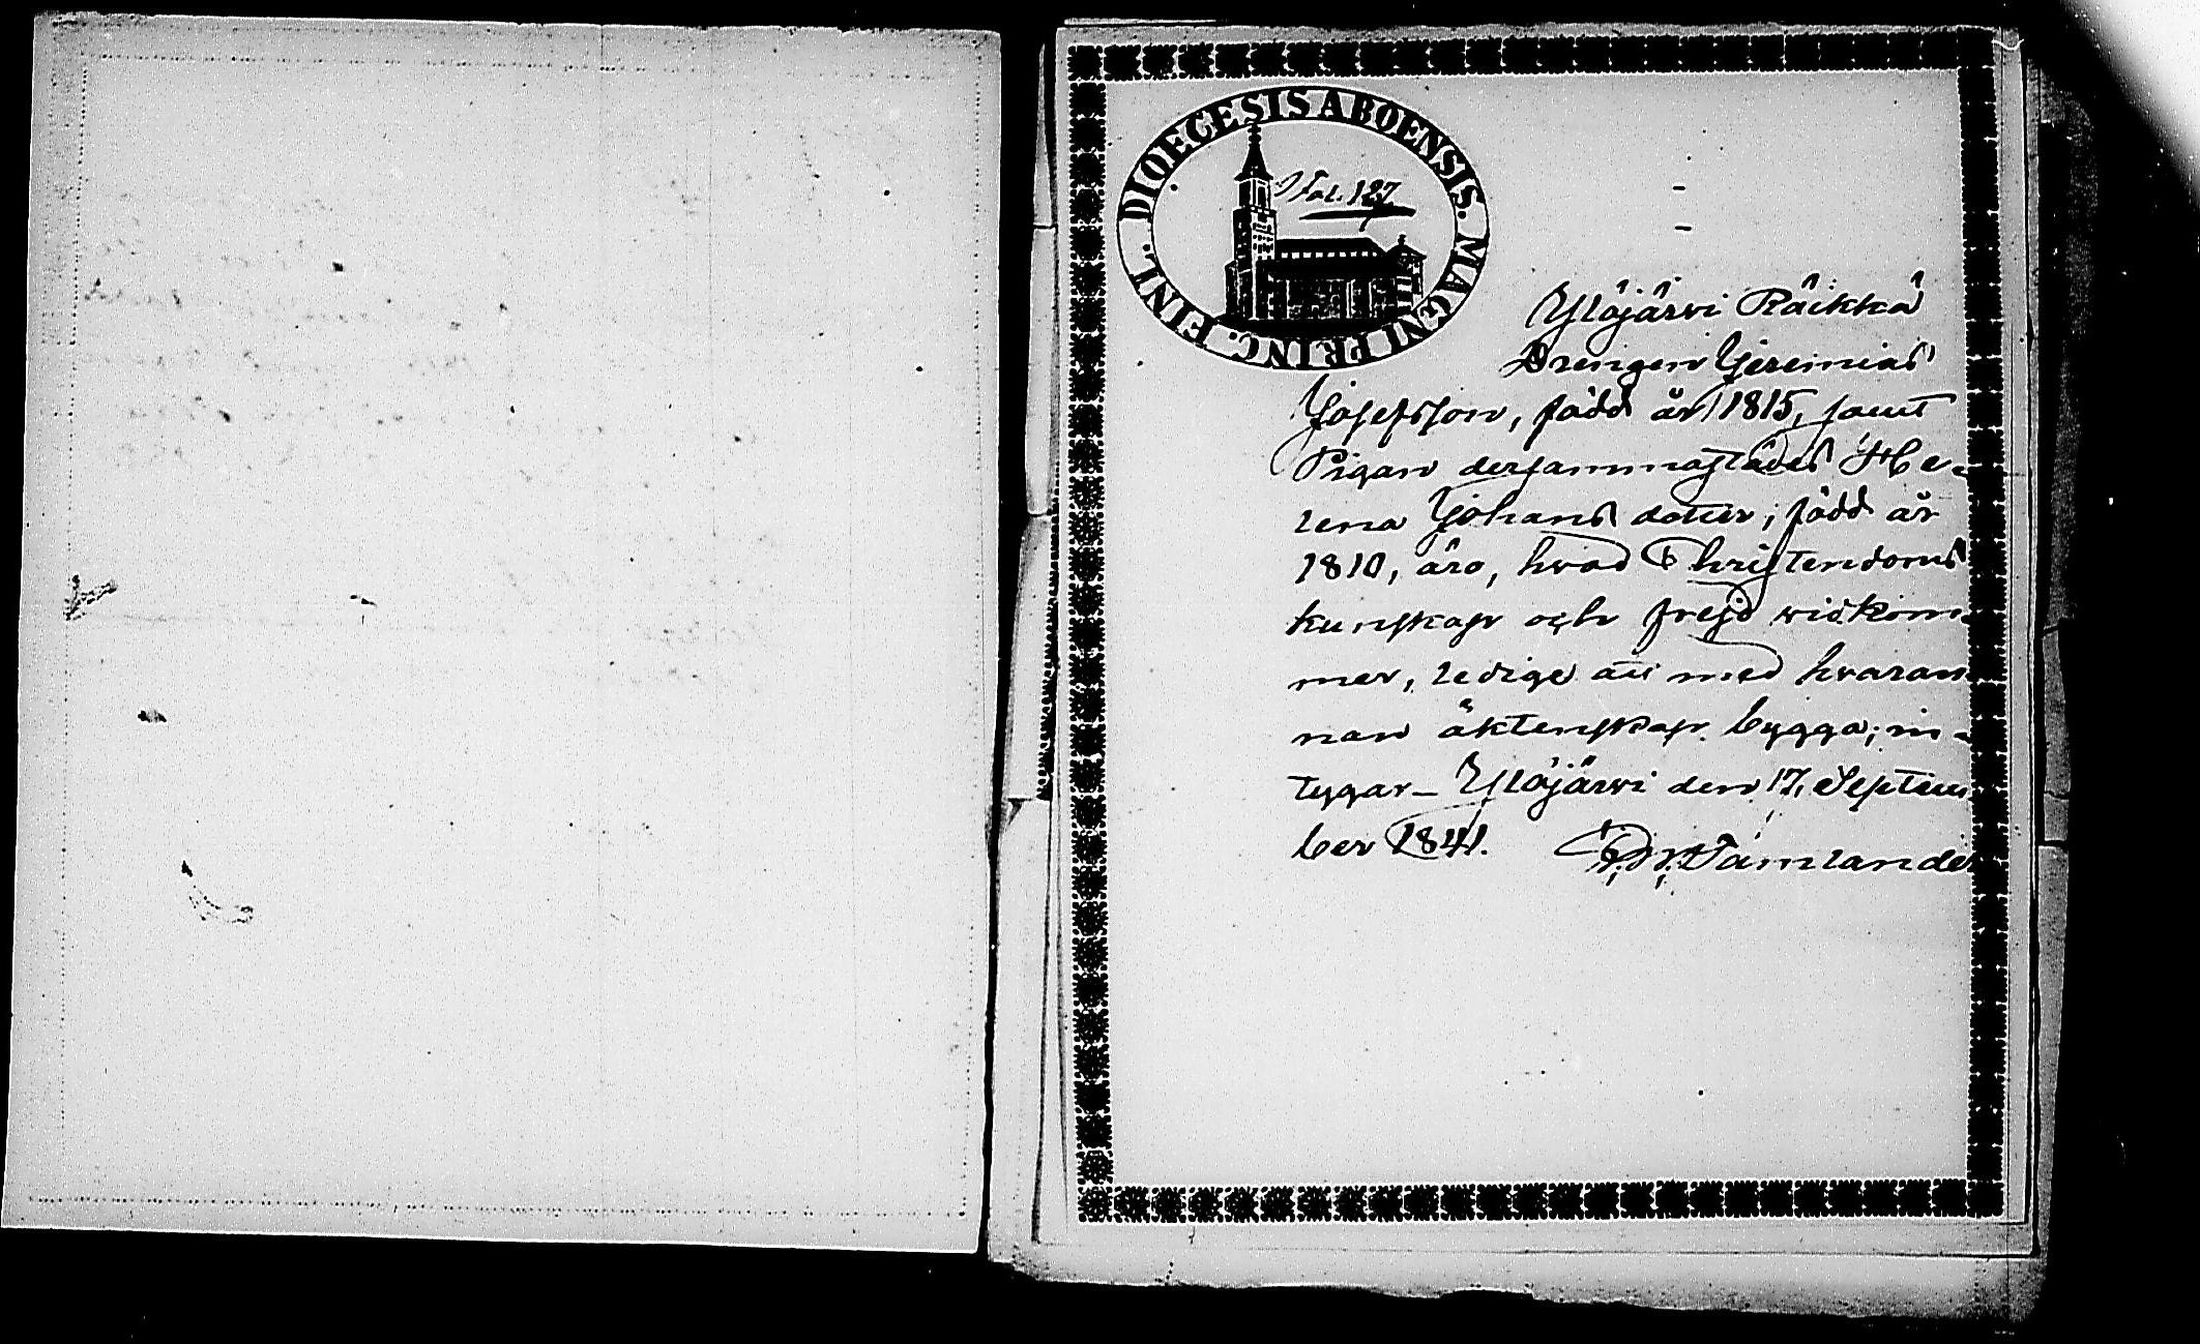 DIOECESIS ABOENSIS. MAGNI PRINC. FINL.
Fol. 127
Ylöjärvi Räikkä
Drengen Jeremias
Josefsson, född år 1815, samt
Pigan dersammastädes He-
lena Johans dotter, född år
1810, äro, hvad Christendoms
kunskap och frejd vidkom-
mer, ledige att med hvaran-
nan äktenskap bygga; in-
tygar_ Ylöjärvi den 17. Septem
ber 1841.